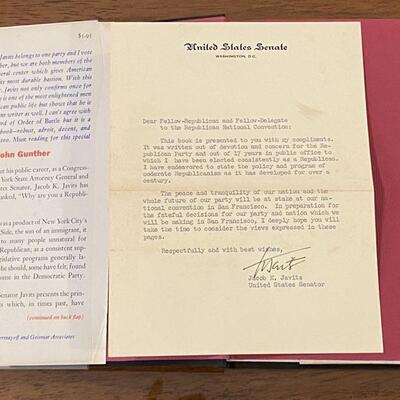 $4.95
Javits belongs to one party and I vote
but we are both members of the
eral center which gives American
its most durable bastion. With this
Javits not only confirms once for
is one of the most enlightened men
an public life but shows that he is
ans writer as well. I can't agree with
rd of Order of Battle but it is a
book—robust, adroit, decent, and
Must reading for this special
ohn Gunther
ut his public career, as a Congress-
York State Attorney General and
tes Senator, Jacob K. Javits has
asked, "Why are you a Republi-
as a product of New York City's
Side, the son of an immigrant, it
to many people unnatural for
Republican; as a consistent sup-
islative programs generally la-
he should, some have felt, found
me in the Democratic Party.
Senator Javits presents the prin-
which, in times past, have
(continued on back flap)
and Geismar Associates
United States Senate
WASHINGTON, D.C.
Dear Fellow-Republican and Fellow-Delegate
to the Republican National Convention:
This book is presented to you with my compliments.
It was written out of devotion and concern for the Re-
publican Party and out of 17 years in public office to
which I have been elected consistently as a Republican.
I have endeavored to state the policy and program of
moderate Republicanism as it has developed for over a
century.
The peace and tranquility of our nation and the
whole future of our party will be at stake at our na-
tional convention in San Francisco. In preparation for
the fateful decisions for our party and nation which we
will be making in San Francisco, I deeply hope you will
take the time to consider the views expressed in these
pages.
Respectfully and with best wishes,
Javits
Jacob K. Javits
United States Senator